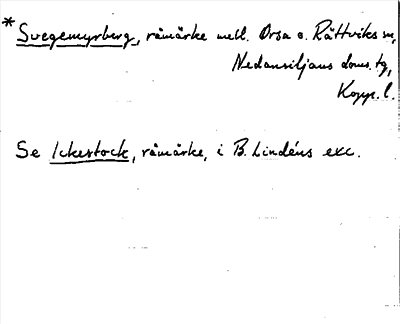 * Svegemyrberg, råmärke mell. Orsa o. Rättviks sn,
Nedansiljans doms. tg,
Kopp. l.
Se Ickestock, råmärke, i B. Lindéns exc.